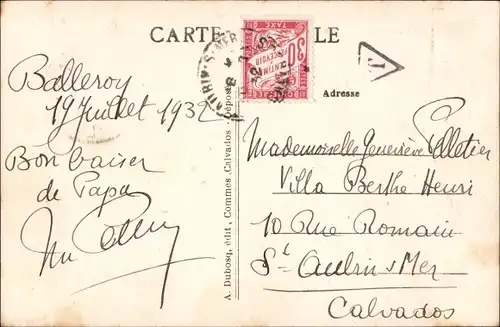 CARTE LE
Adresse
30
CENTIMES
A PERCEVOIR
TAXE
T
Balleroy
19 Juillet 1932
Bon baiser
de Papa
A. Dubosq, édit., Commes, Calvados
Mademoiselle Geneviève Pelletier
Villa Berthe Henri
10 Rue Romain
St Aubin s/Mer
Calvados